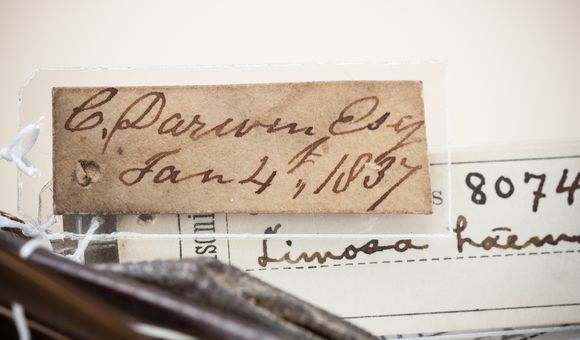 C. Darwin, Esq
Jan 4th, 1837
s 8074
Limosa haem